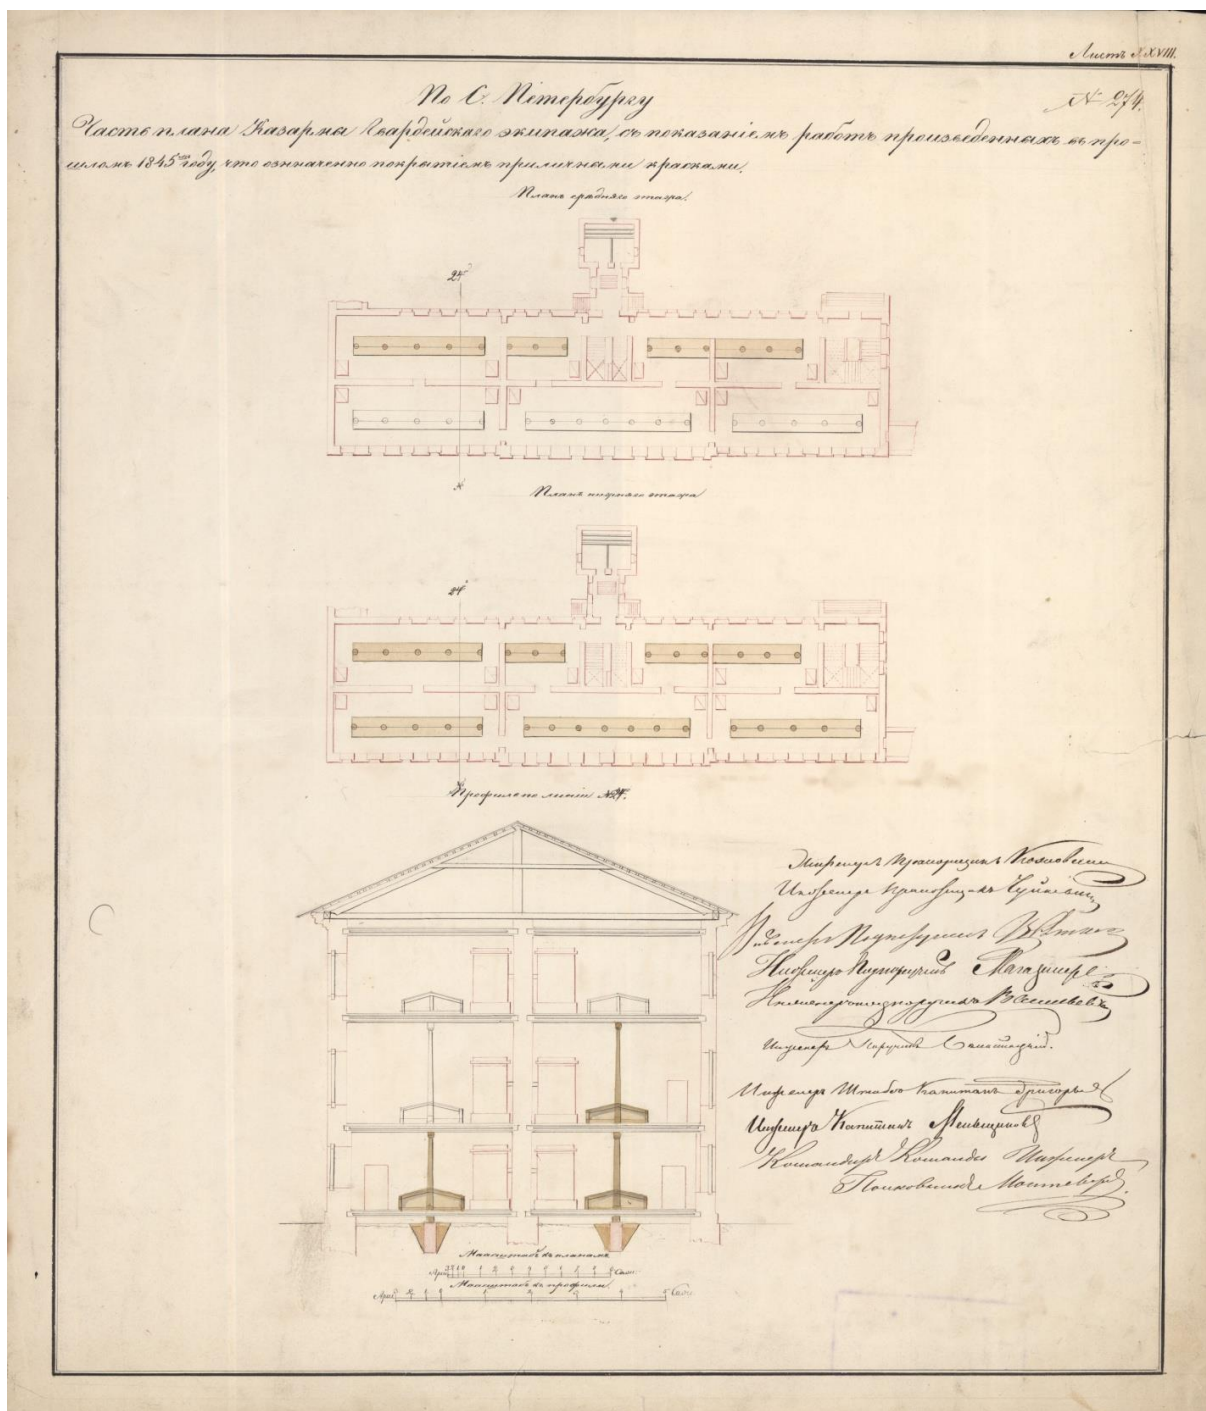 Листъ XXVIII.
По С. Петербургу
№ 274.
Часть плана Казармы Гвардейскаго экипажа, съ показаніемъ работъ произведенныхъ въ про-
шломъ 1845мъ году, что означенно покрытіемъ приличными красками.
Планъ средняго этажа.
24
Планъ нижняго этажа
24
Профиль по линіи
Инженеръ Прапорщикъ
Инженеръ Прапорщикъ
Инженеръ Подпоручикъ
Инженеръ Подпоручикъ
Инженеръ подпоручикъ Васильевъ
Инженеръ Поручикъ
Инженеръ Штабсъ Капитанъ Григорьевъ
Инженеръ Капитанъ Меньщиковъ
Командиръ Команды Инженеръ
Полковникъ
Масштабъ къ планамъ
Арш. Саж.
Масштабъ къ профили.
Арш. Саж.